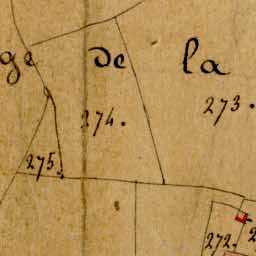 ge de la
273.
274.
275.
272.